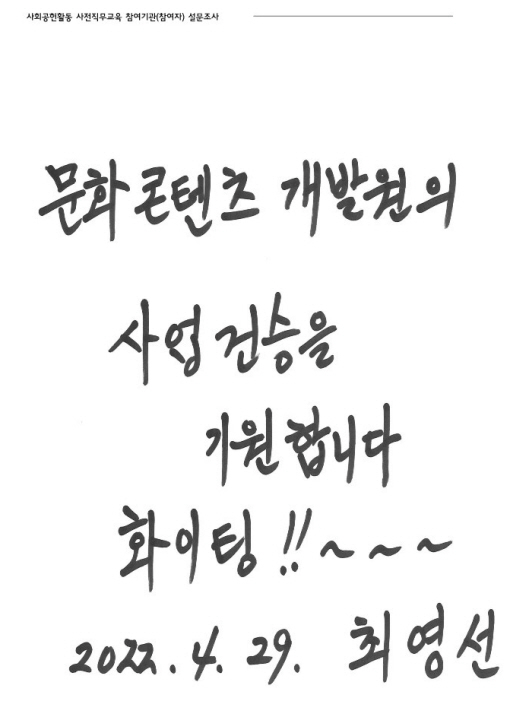 사회공헌활동 사전직무교육 참여기관(참여자) 설문조사
문화콘텐츠 개발원의
사업 건승을
기원합니다
화이팅!!~~~
2022.4.29. 최영선